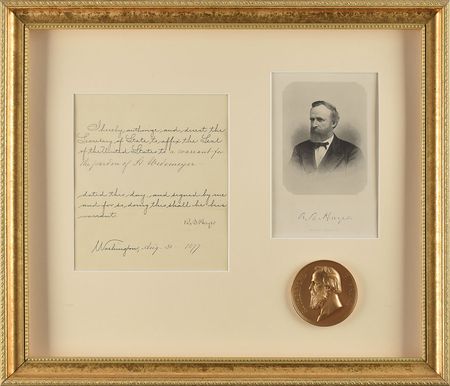 I hereby authorize and direct the
Secretary of State to affix the Seal
of the United States to a warrant for
the pardon of
dated this day, and signed by me
and for so doing this shall be his
warrant.
R. B. Hayes
Washington, Aug. 1877
R. B. Hayes